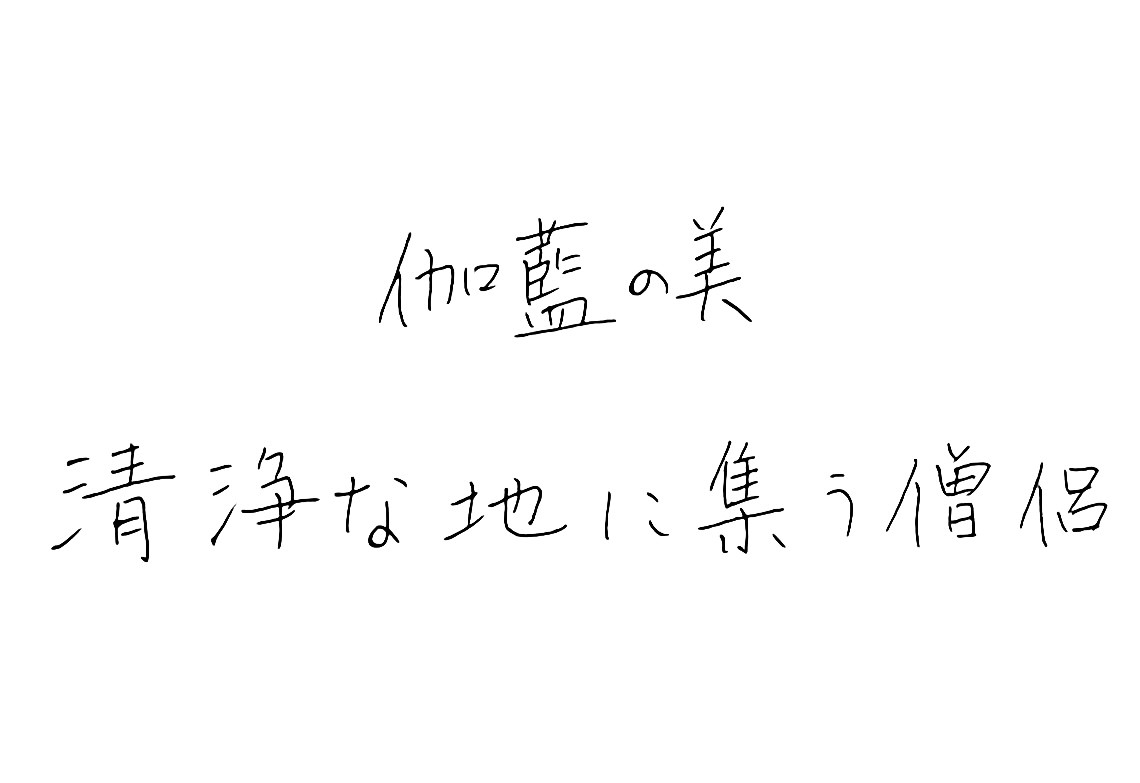 伽藍の美
清浄な地に集う僧侶